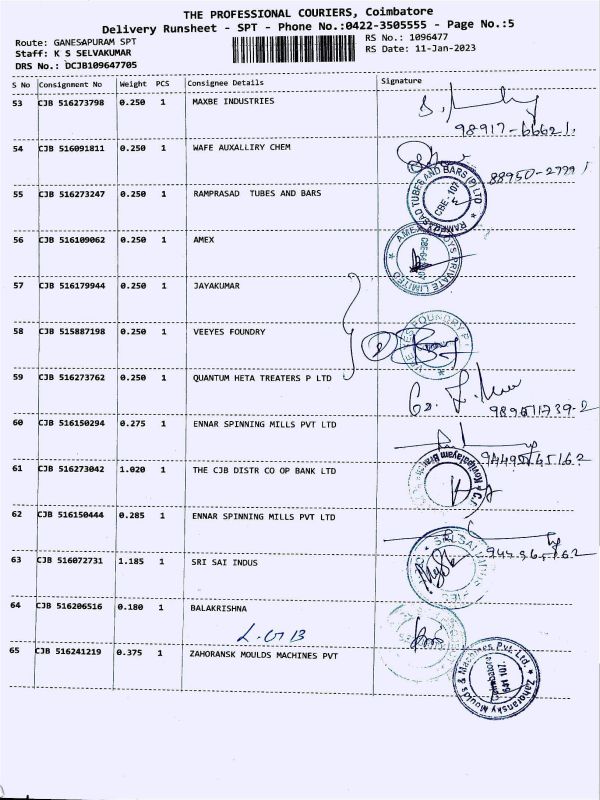 THE PROFESSIONAL COURIERS, Coimbatore
Delivery Runsheet - SPT - Phone No.:0422-3505555 - Page No.:5
Route: GANESAPURAM SPT
RS No.: 1096477
Staff: K S SELVAKUMAR
RS Date: 11-Jan-2023
DRS No.: DCJB109647705
S No Consignment No Weight PCS Consignee Details Signature
53 CJB 516273798 0.250 1 MAXBE INDUSTRIES
98917-66621
54 CJB 516091811 0.250 1 WAFE AUXALLIRY CHEM
88950-27991
55 CJB 516273247 0.250 1 RAMPRASAD TUBES AND BARS
RAMEPRASAD TUBES AND BARS (P) LTD
CBE-107
56 CJB 516109062 0.250 1 AMEX
PRIVATE LIMITED
57 CJB 516179944 0.250 1 JAYAKUMAR
58 CJB 515887198 0.250 1 VEEYES FOUNDRY
FOUNDRY
59 CJB 516273762 0.250 1 QUANTUM HETA TREATERS P LTD
60 CJB 516150294 0.275 1 ENNAR SPINNING MILLS PVT LTD
61 CJB 516273042 1.020 1 THE CJB DISTR CO OP BANK LTD
Kovilpalayam
62 CJB 516150444 0.285 1 ENNAR SPINNING MILLS PVT LTD
63 CJB 516072731 1.185 1 SRI SAI INDUS
SRI SAI
64 CJB 516206516 0.180 1 BALAKRISHNA
L.G B
65 CJB 516241219 0.375 1 ZAHORANSK MOULDS MACHINES PVT
Zahoransky Moulds & Machines Pvt. Ltd.
641 107